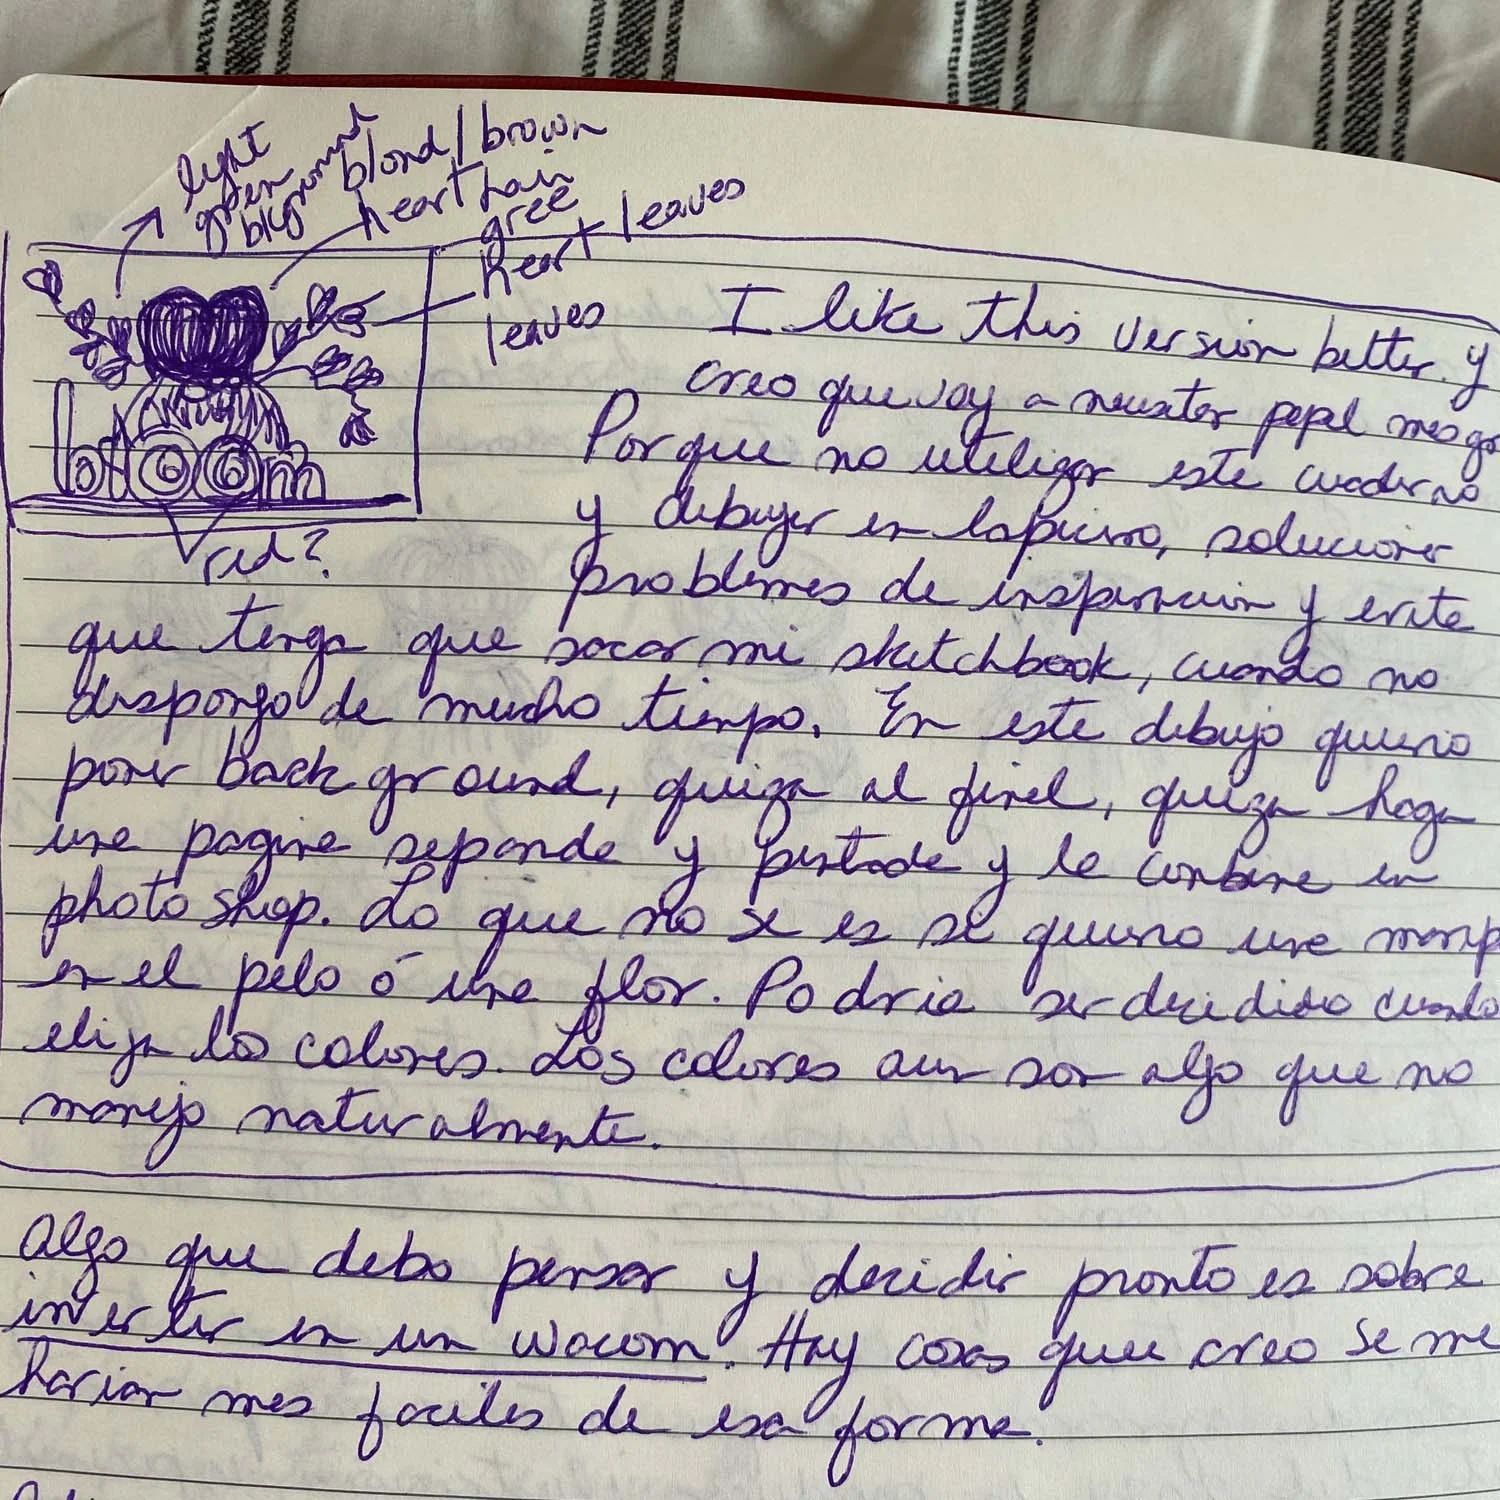 light
green
blond/brown
background
heart hair
gree
heart leaves
leaves
bloom
red?
I like this version better. y
creo que voy a necesitar papel mas gr
Porque no utilizar este cuaderno
y dibujar en lapicero, solucionar
problemas de inspiracion y evite
que tenga que sacar mi sketchbook, cuando no
dispongo de mucho tiempo. En este dibujo quiero
poner background, quiza al final, quiza haga
una pagina separada y pintada y la combine en
photoshop. Lo que no se es si quiero una marip
en el pelo ó una flor. Podria ser decidido cuando
elija los colores. Los colores aun son algo que no
manejo naturalmente.
Algo que debo pensar y decidir pronto es sobre
invertir en un wacom. Hay cosas que creo se me
harian mas faciles de esa forma.